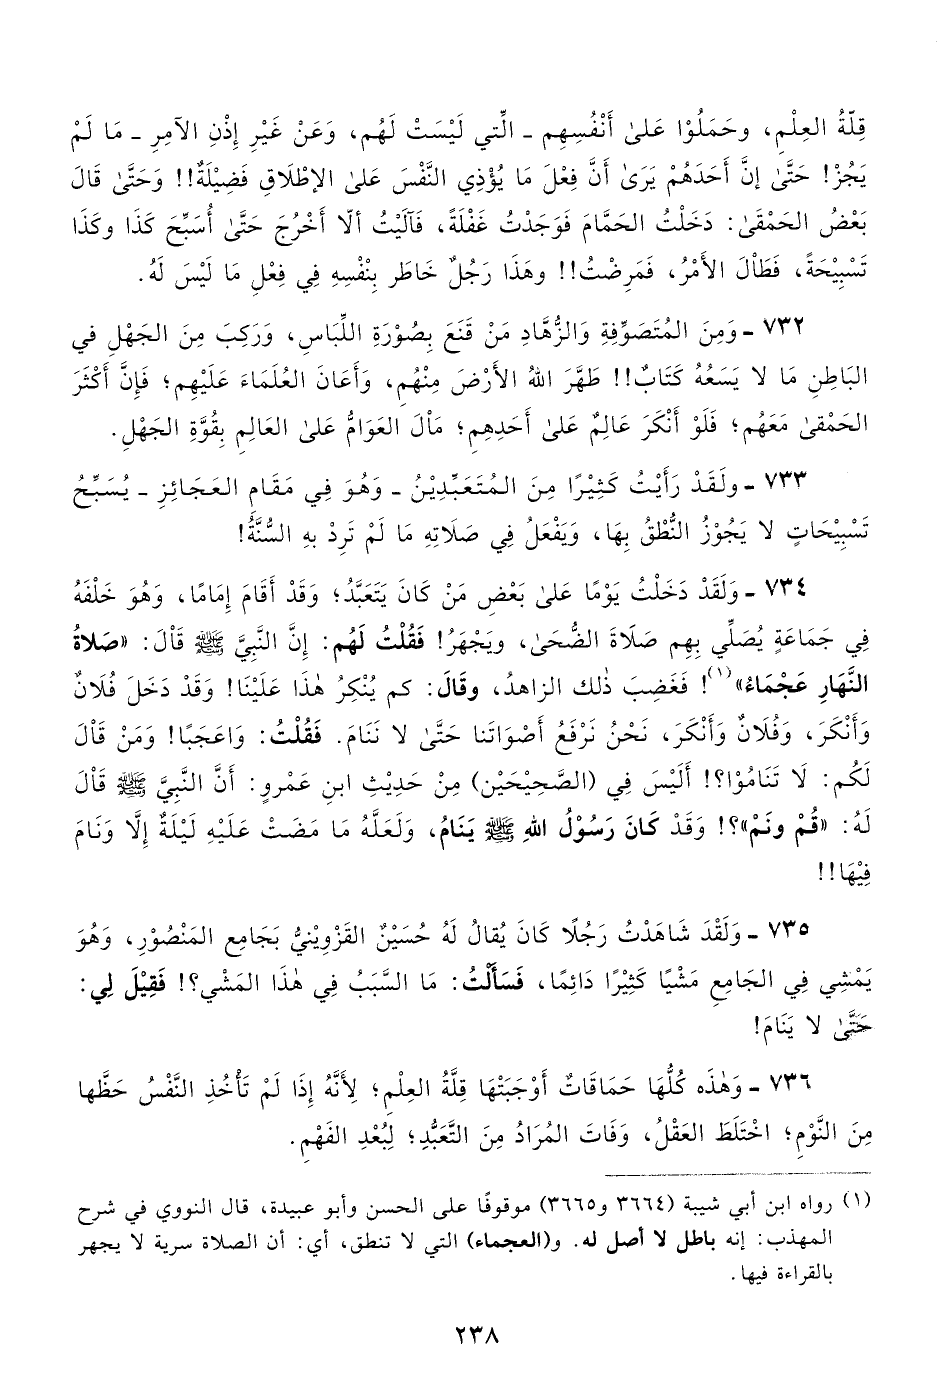 قِلَّةُ العِلْمِ، وحَمَلُوْا عَلىٰ أَنْفُسِهِم ـ الَّتي لَيْسَتْ لَهُم، وَعَنْ غَيْرِ إِذْنِ الآمِرِ ـ مَا لَمْ
يَجُزْ! حَتَّىٰ إِنَّ أَحَدَهُمْ يَرَىٰ أَنَّ فِعْلَ مَا يُؤْذِي النَّفْسَ عَلىٰ الإِطْلَاقِ فَضِيْلَةٌ!! وَحَتَّىٰ قَالَ
بَعْضُ الحَمْقَىٰ: دَخَلْتُ الحَمَّامَ فَوَجَدْتُ غَفْلَةً، فَآلَيْتُ ألَّا أَخْرُجَ حَتَّىٰ أُسَبِّحَ كَذَا وكَذَا
تَسْبِيْحَةً، فَطَاْلَ الأَمْرُ، فَمَرِضْتُ!! وهَذَا رَجُلٌ خَاطَر بِنَفْسِهِ فِي فِعْلِ مَا لَيْسَ لَهُ.
٧٣٢ ـ وَمِنَ المُتَصَوِّفَةِ وَالزُّهَّادِ مَنْ قَنَعَ بِصُوْرَةِ اللِّبَاسِ، وَرَكِبَ مِنَ الجَهْلِ في
البَاطِنِ مَا لا يَسَعُهُ كَتَابٌ!! طَهَّرَ اللهُ الأَرْضَ مِنْهُم، وَأَعَانَ العُلَمَاءَ عَلَيْهِم؛ فَإِنَّ أَكْثَرَ
الحَمْقىٰ مَعَهُم؛ فَلَوْ أَنْكَرَ عَالِمٌ عَلىٰ أَحَدِهِم؛ مَاْلَ العَوَامُّ عَلىٰ العَالِمِ بِقُوَّةِ الجَهْلِ.
٧٣٣ ـ ولَقَدْ رَأَيْتُ كَثِيْرًا مِنَ المُتَعَبِّدِيْنُ ـ وَهُوَ فِي مَقَامِ العَجَائِزِ ـ يُسَبِّحُ
تَسْبِيْحَاتٍ لا يَجُوْزُ النُّطْقُ بِهَا، وَيَفْعَلُ فِي صَلَاتِهِ مَا لَمْ تَرِدْ بهِ السُّنَّةُ!
٧٣٤ ـ وَلَقَدْ دَخَلْتُ يَوْمًا عَلىٰ بَعْضِ مَنْ كَانَ يَتَعَبَّدُ؛ وَقَدْ أَقَامَ إِمَامًا، وَهُوَ خَلْفَهُ
فِي جَمَاعَةٍ يُصَلِّي بِهِم صَلَاةَ الضُّحَىٰ، ويَجْهَرُ! فَقُلْتُ لَهُم: إِنَّ النَّبِيَّ ﷺ قَاْلَ: «صَلاةُ
النَّهَارِ عَجْمَاءُ»(١)! فَغَضِبَ ذٰلك الزاهدُ، وقَالَ: كم يُنْكِرُ هٰذَا عَلَيْنَا! وَقَدْ دَخَلَ فُلَانٌ
وَأَنْكَرَ، وَفُلَانٌ وَأَنْكَرَ، نَحْنُ نَرْفَعُ أَصْوَاتَنا حَتَّىٰ لا نَنَامَ. فَقُلْتُ: وَاعَجَبًا! وَمَنْ قَالَ
لَكُم: لَا تَنَامُوْا؟! أَلَيْسَ فِي (الصَّحِيْحَيْنِ) مِنْ حَدِيْثِ ابنِ عَمْرٍو: أَنَّ النَّبِيَّ ﷺ قَاْلَ
لَهُ: «قُمْ ونَمْ»؟! وَقَدْ كَانَ رَسُوْلُ اللهِ ﷺ يَنَامُ، وَلَعَلَّهُ مَا مَضَتْ عَلَيْهِ لَيْلَةٌ إِلَّا وَنَامَ
فِيْهَا!!
٧٣٥ ـ وَلَقَدْ شَاهَدْتُ رَجُلًا كَانَ يُقالُ لَهُ حُسَيْنٌ القَزْوِيْنيُّ بَجَامِعِ المَنْصُوْرِ، وَهُوَ
يَمْشِي فِي الجَامِعِ مَشْيًا كَثِيْرًا دَائِمًا، فَسَأَلْتُ: مَا السَّبَبُ فِي هٰذَا المَشْيِ؟! فَقِيْلَ لِي:
حَتَّىٰ لا يَنَامَ!
٧٣٦ ـ وَهٰذه كُلُّهَا حَمَاقَاتٌ أَوْجَبَتْهَا قِلَّةُ العِلْمِ؛ لِأَنَّهُ إِذَا لَمْ تَأْخُذِ النَّفْسُ حَظَّها
مِنَ النَّوْمِ؛ اخْتَلَطَ العَقْلُ، وَفَاتَ المُرَادُ مِنَ التَّعَبُّدِ؛ لِبُعْدِ الفَهْمِ.
(١) رواه ابن أبي شيبة (٣٦٦٤ و٣٦٦٥) موقوفًا على الحسن وأبو عبيدة، قال النووي في شرح
المهذب: إنه باطل لا أصل له. و(العجماء) التي لا تنطق، أي: أن الصلاة سرية لا يجهر
بالقراءة فيها.
٢٣٨